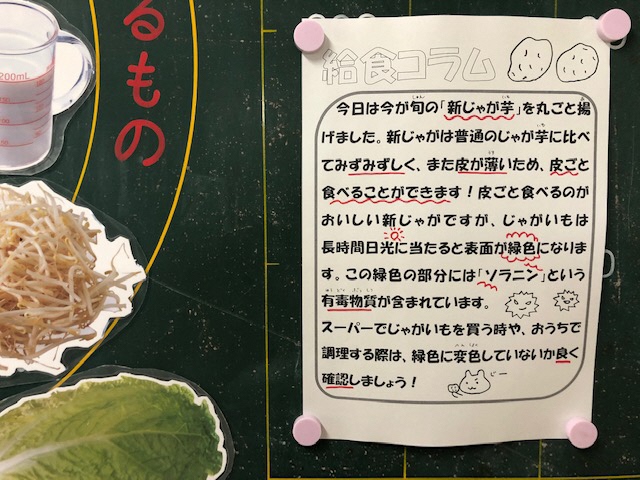 るもの
200mL
給食コラム
今日は今が旬の「新じゃが芋」を丸ごと揚
げました。新じゃがは普通のじゃが芋に比べ
てみずみずしく、また皮が薄いため、皮ごと
食べることができます！皮ごと食べるのが
おいしい新じゃがですが、じゃがいもは
長時間日光に当たると表面が緑色になりま
す。この緑色の部分には「ソラニン」という
有毒物質が含まれています。
スーパーでじゃがいもを買う時や、おうちで
調理する際は、緑色に変色していないか良く
確認しましょう！
じー